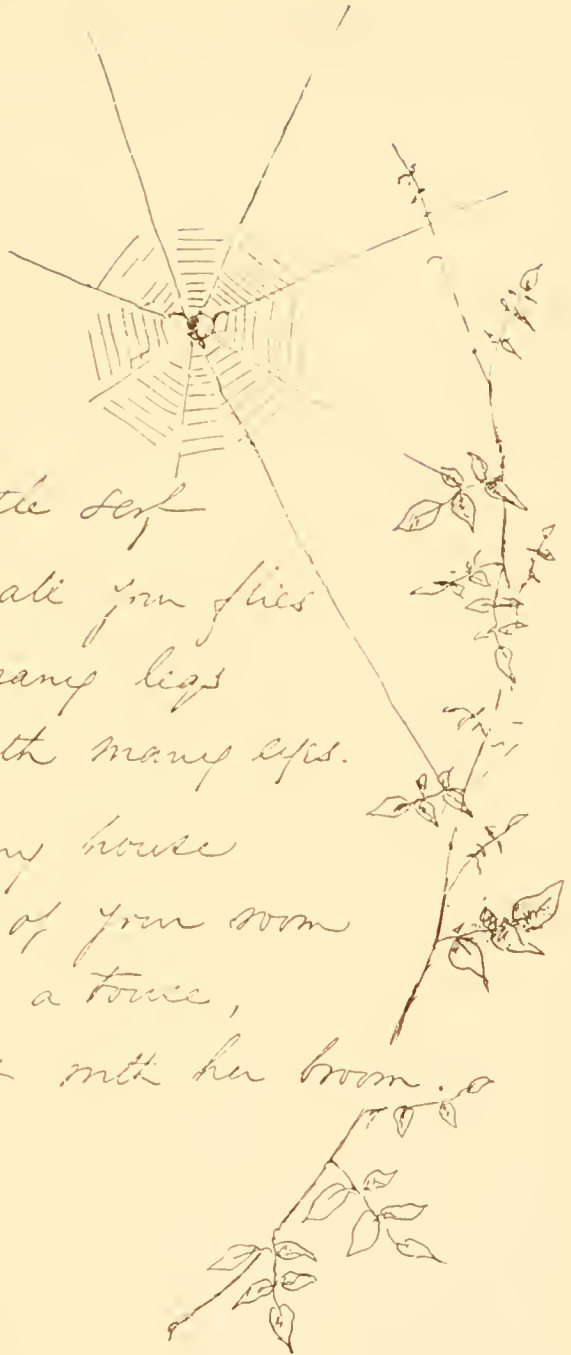 tle self
ate your flies
any legs
th many eyes.
ny house
of your room
a
with her broom.